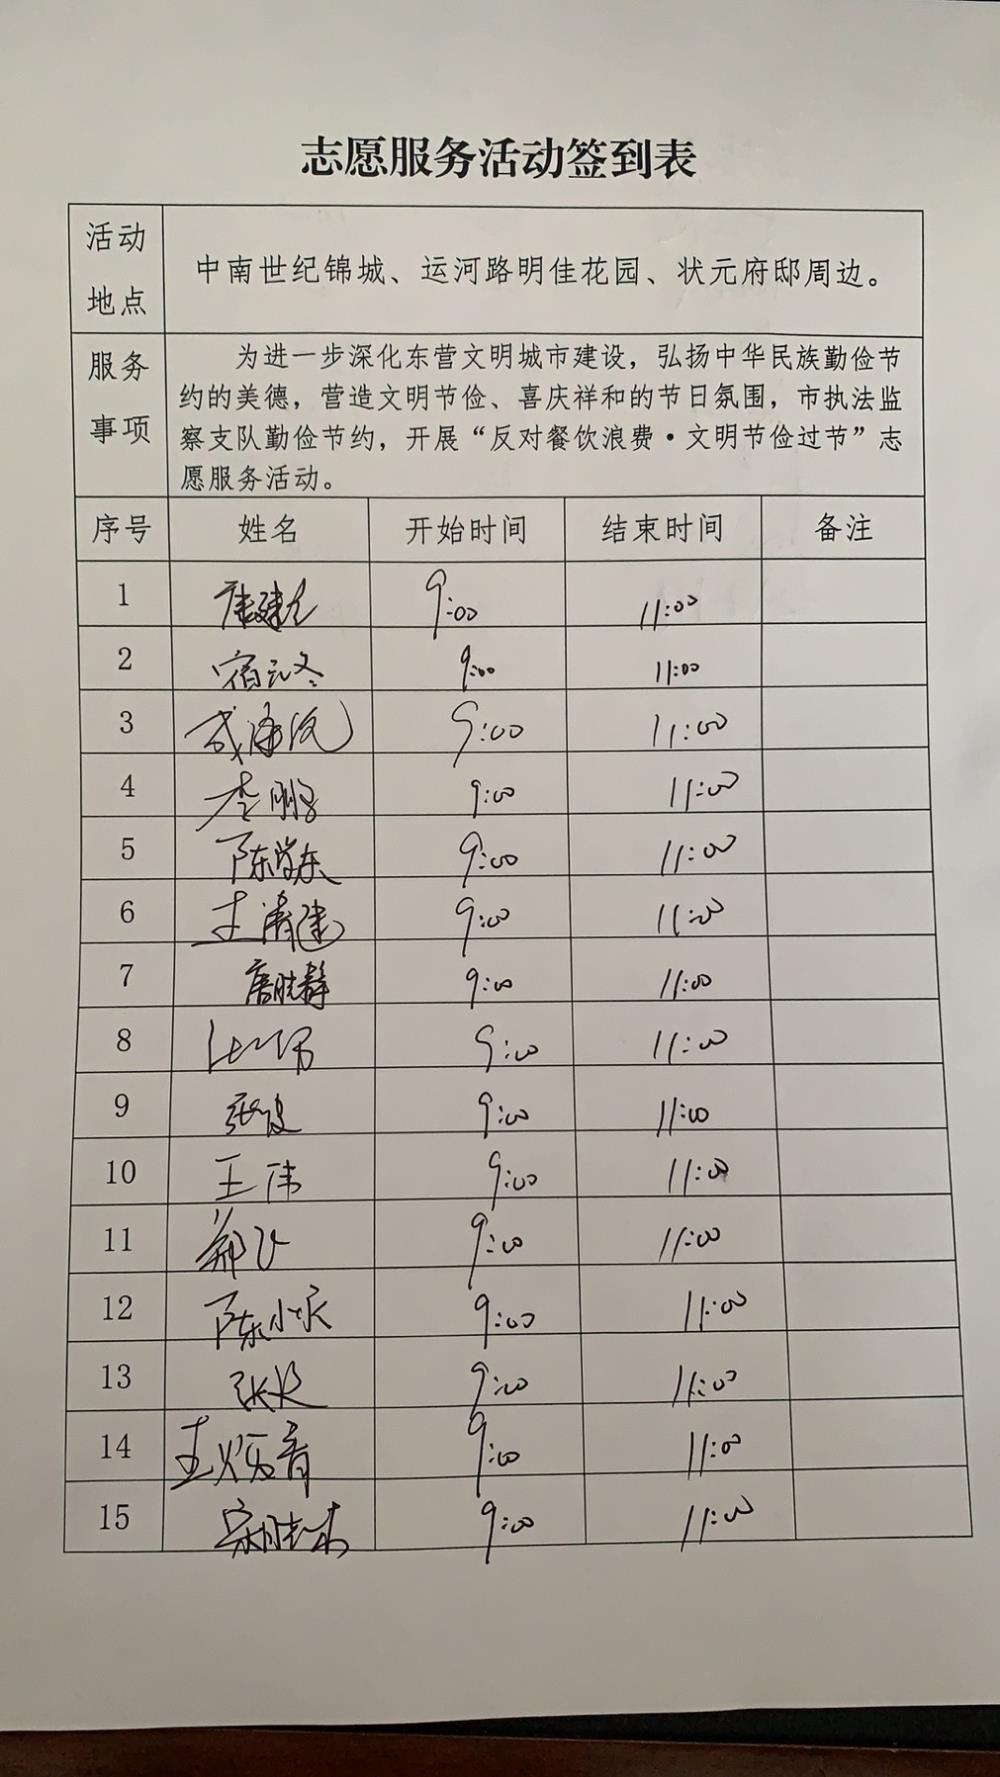 志愿服务活动签到表
活动地点
中南世纪锦城、运河路明佳花园、状元府邸周边。
服务事项
为进一步深化东营文明城市建设，弘扬中华民族勤俭节
约的美德，营造文明节俭、喜庆祥和的节日氛围，市执法监
察支队勤俭节约，开展“反对餐饮浪费·文明节俭过节”志
愿服务活动。
序号 姓名 开始时间 结束时间 备注
1 9:00 11:00
2 9:00 11:00
3 9:00 11:00
4 李鹏 9:00 11:00
5 9:00 11:00
6 王清建 9:00 11:00
7 唐胜静 9:00 11:00
8 9:00 11:00
9 9:00 11:00
10 王伟 9:00 11:00
11 9:00 11:00
12 9:00 11:00
13 9:00 11:00
14 9:00 11:00
15 9:00 11:00